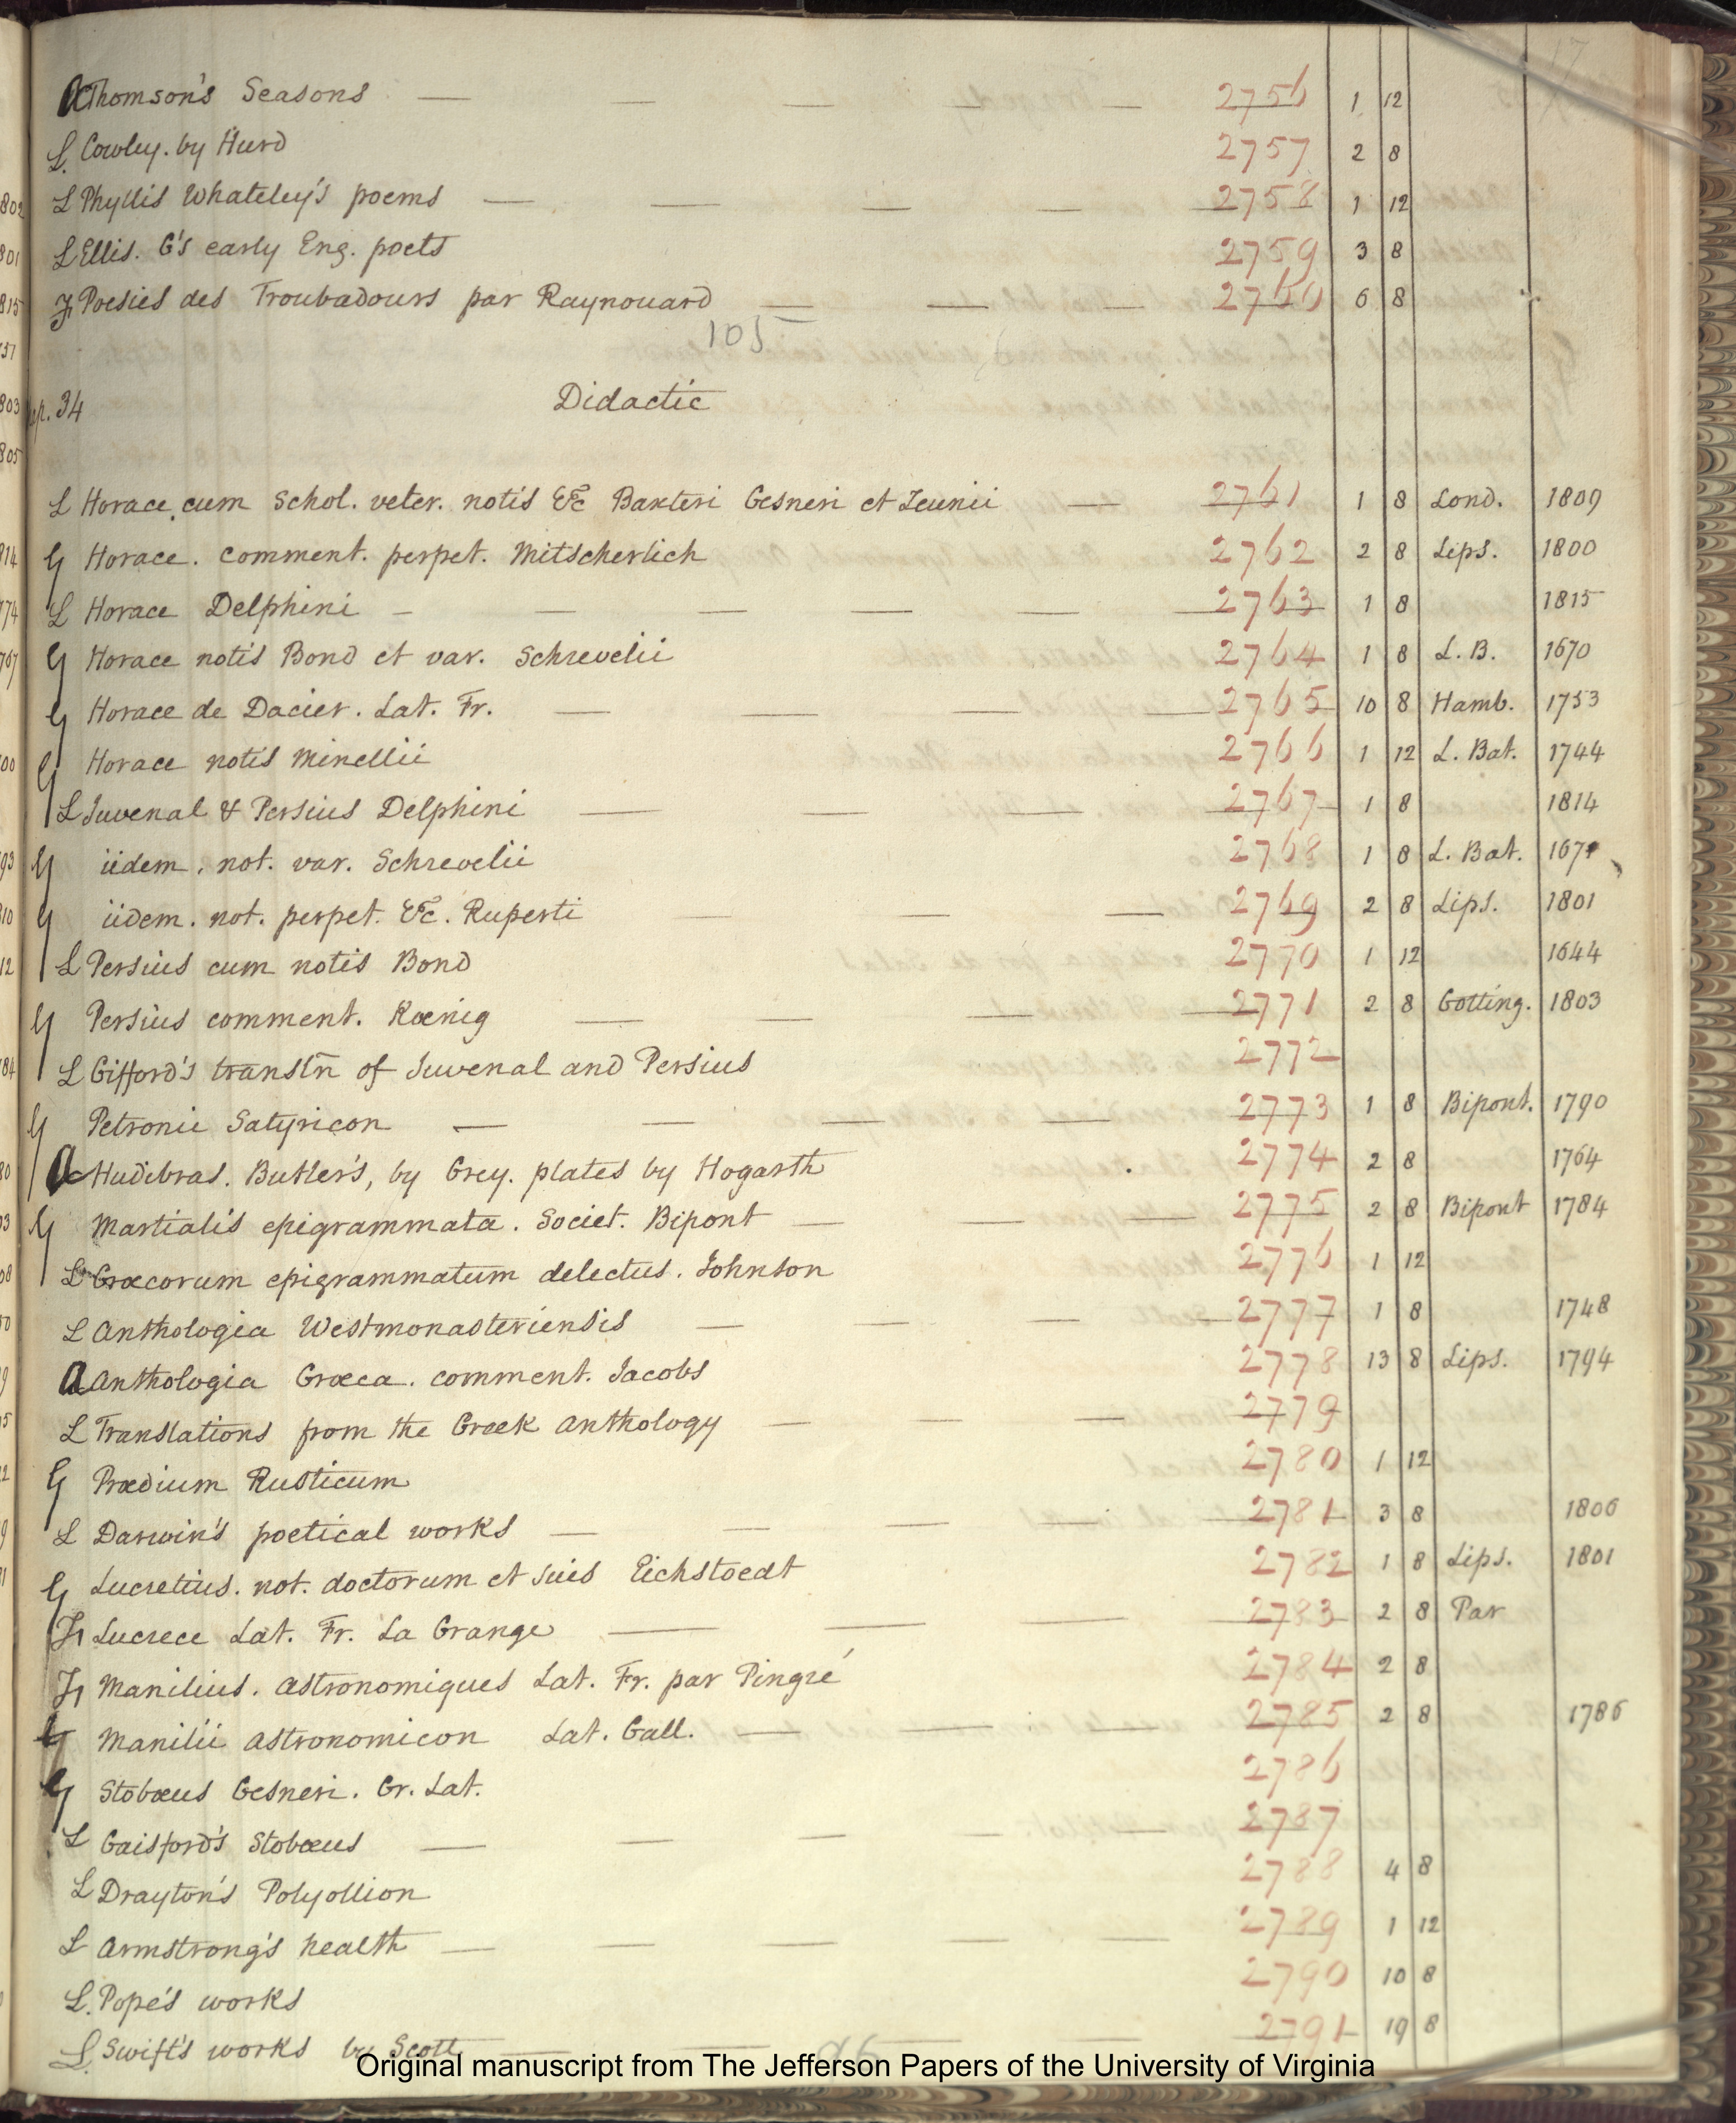 17
a Thomson's Seasons — — — — — 2756 1 12
L. Cowley. by Hurd 2757 2 8
L Phyllis Whateley's poems — — — — — 2758 1 12
L Ellis. G's early Eng. poets 2759 3 8
Fr Poesies des Troubadours par Raynouard — — — — 2760 6 8
105
p. 34 Didactic
L Horace. cum Schol. veter. notis &c Baxteri Gesneri et Zeunii — — 2761 1 8 Lond. 1809
G Horace. comment. perpet. Mitscherlich 2762 2 8 Lips. 1800
L Horace Delphini — — — — — — 2763 1 8 1815
G Horace notis Bond et var. Schrevelii 2764 1 8 L. B. 1670
G Horace de Dacier. Lat. Fr. — — — — 2765 10 8 Hamb. 1753
G Horace notis Minellii 2766 1 12 L. Bat. 1744
L Juvenal & Persius Delphini — — — — 2767 1 8 1814
G iidem. not. var. Schrevelii 2768 1 8 L. Bat. 1671
G iidem. not. perpet. &c. Ruperti — — — 2769 2 8 Lips. 1801
L Persius cum notis Bond 2770 1 12 1644
G Persius comment. Kœnig — — — — 2771 2 8 Gotting. 1803
L Gifford's transln of Juvenal and Persius 2772
G Petronii Satyricon — — — — — 2773 1 8 Bipont. 1790
a Hudibras. Butler's, by Grey. plates by Hogarth 2774 2 8 1764
G Martialis epigrammata. Societ. Bipont — — — 2775 2 8 Bipont 1784
L Græcorum epigrammatum delectus. Johnson 2776 1 12
L Anthologia Westmonasteriensis — — — — 2777 1 8 1748
a Anthologia Græca. comment. Jacobs 2778 13 8 Lips. 1794
L Translations from the Greek Anthology — — — — 2779
G Prædium Rusticum 2780 1 12
L Darwin's poetical works — — — — — 2781 3 8 1806
G Lucretius. not. doctorum et suis Eichstoedt 2782 1 8 Lips. 1801
Fr Lucrece Lat. Fr. La Grange — — — — 2783 2 8 Par
Fr Manilius. Astronomiques Lat. Fr. par Pingré 2784 2 8
G Manilii Astronomicon Lat. Gall. — — — — 2785 2 8 1786
G Stobœus Gesneri. Gr. Lat. 2786
L Gaisford's Stobœus — — — — — 2787
L Drayton's Polyollion 2788 4 8
L Armstrong's health — — — — — 2789 1 12
L. Pope's works 2790 10 8
L. Swift's works by Scott — — — — 2791 19 8
Original manuscript from The Jefferson Papers of the University of Virginia